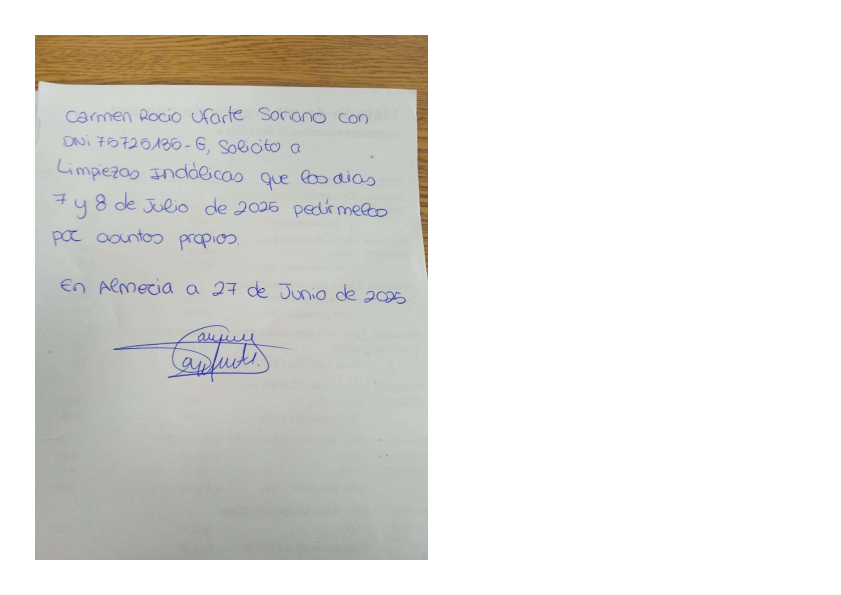 Carmen Rocio Ufarte Soriano con
DNi 75725135-G, Solicito a
Limpiezas Indálicas que los dias
7 y 8 de Julio de 2025 pedírmelos
por asuntos propios.
En Almeria a 27 de Junio de 2025